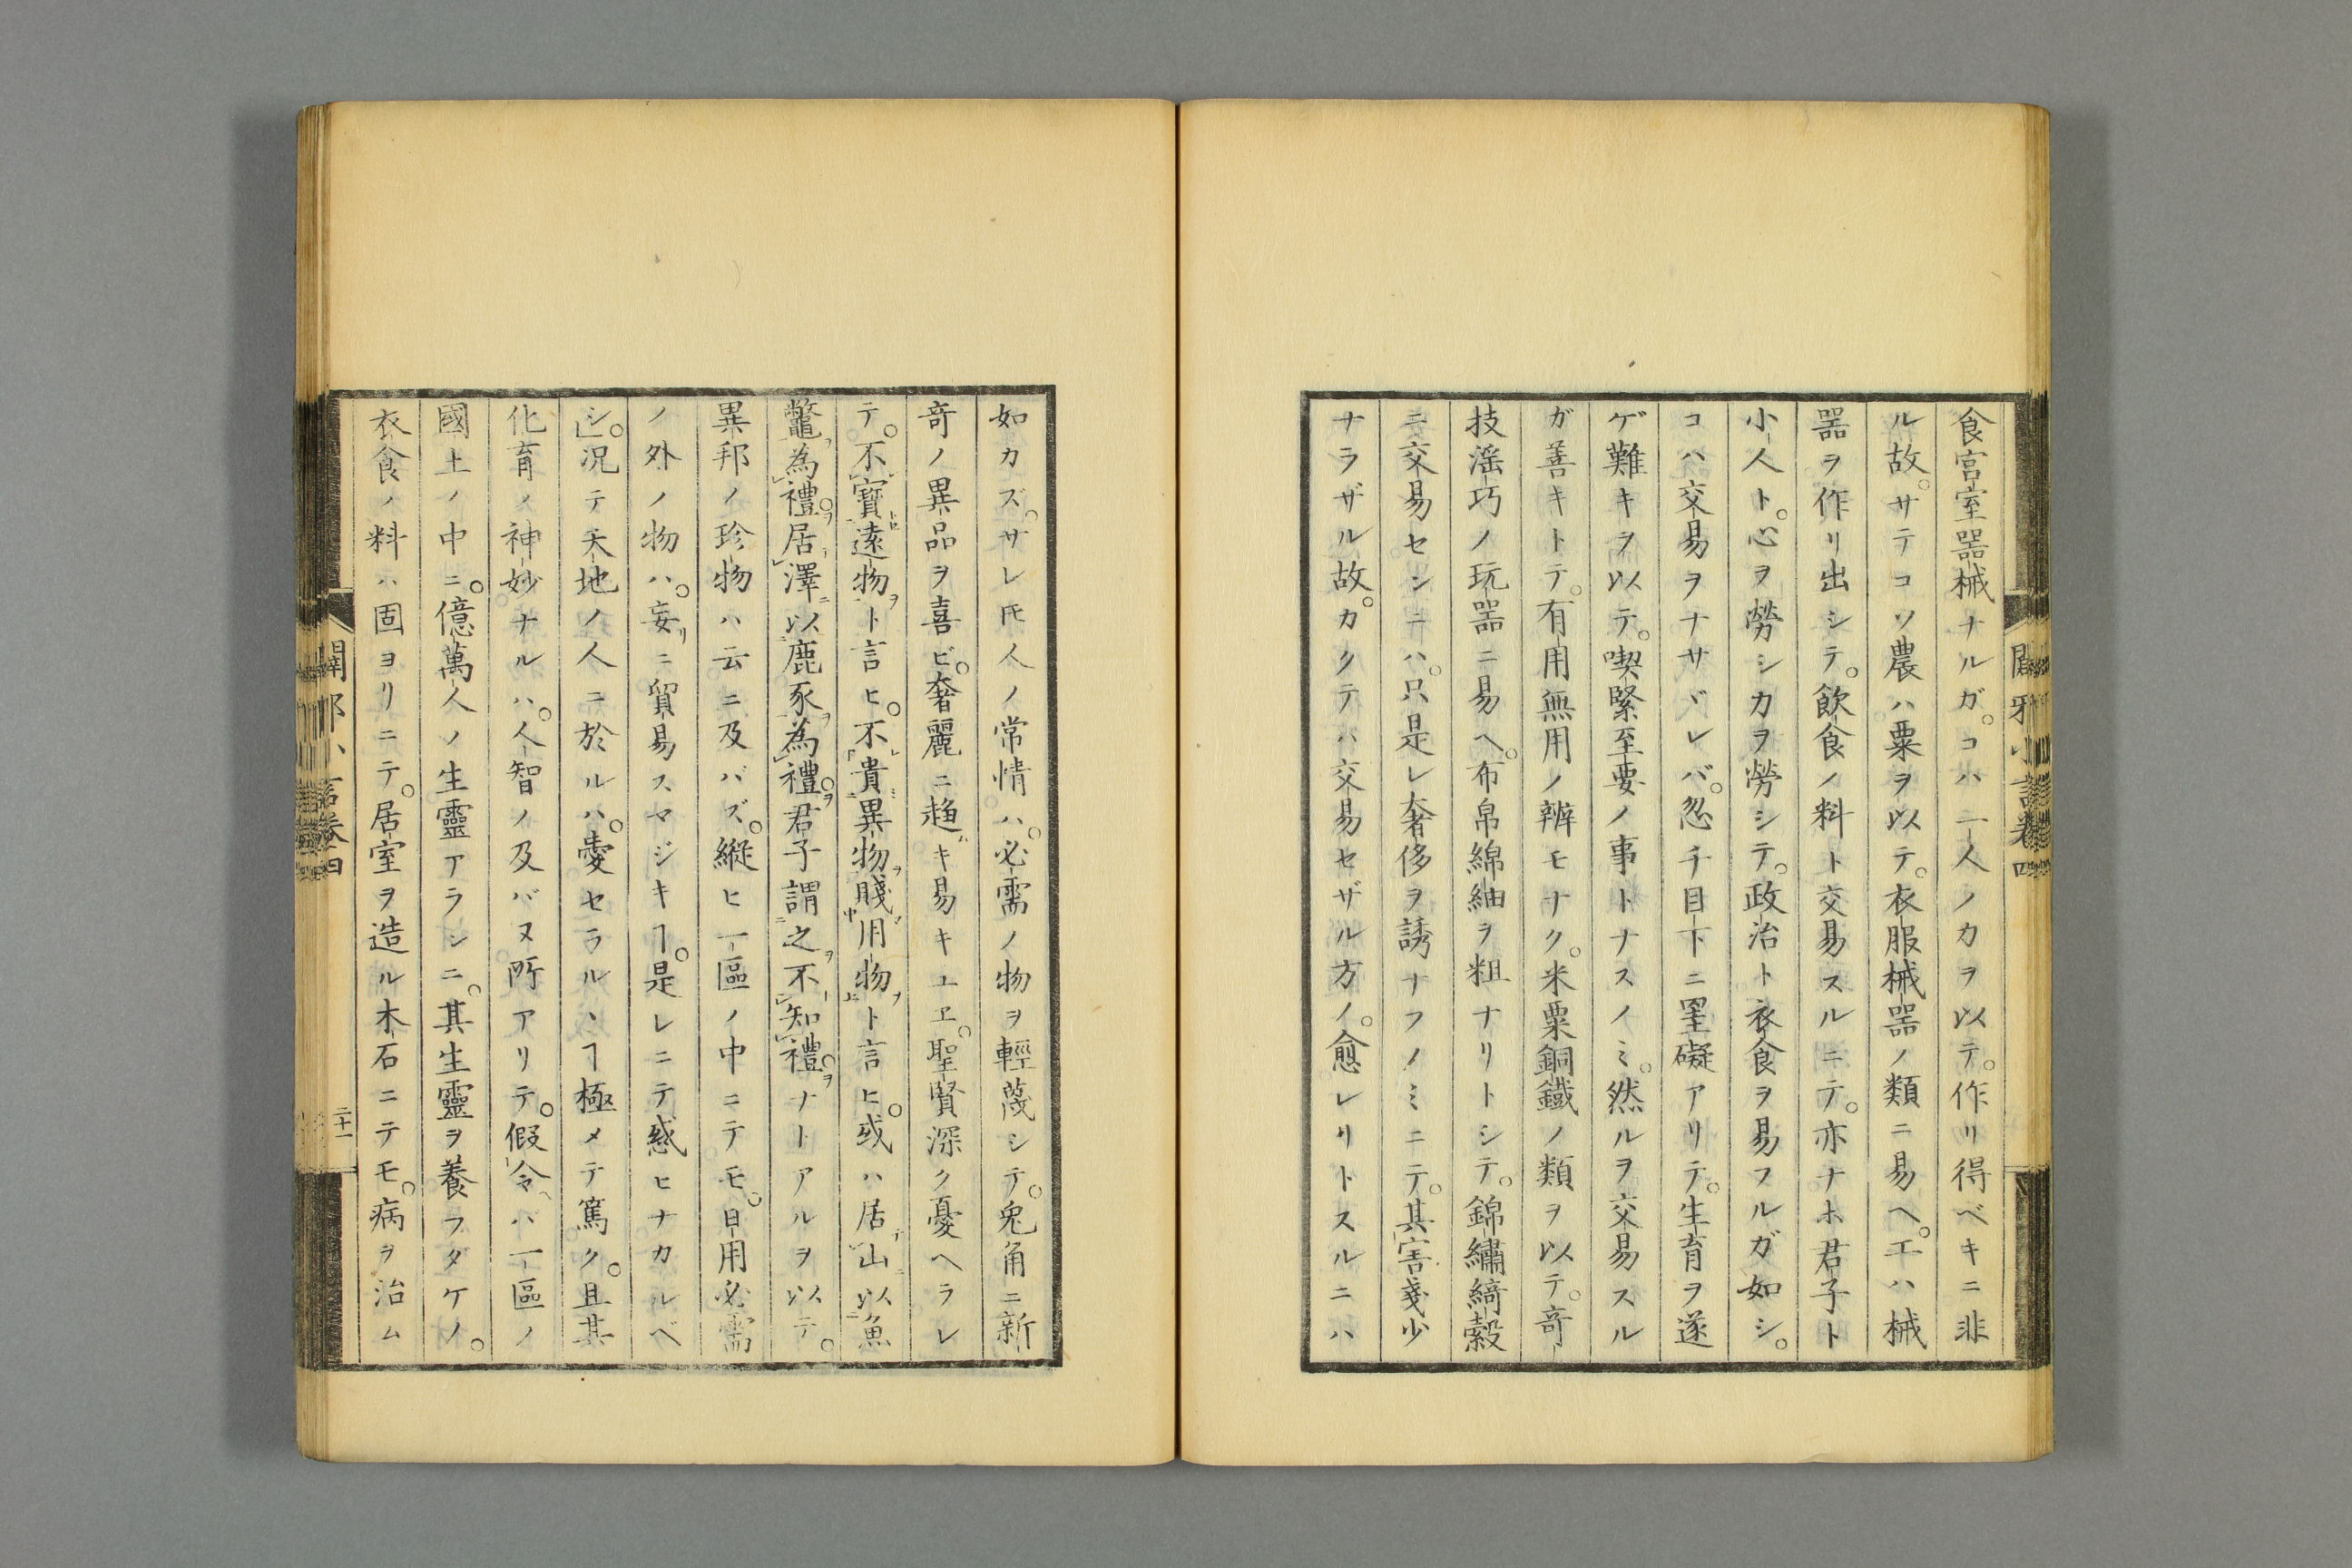 食宮室器械ナルガ。コハ一人ノカヲ以テ。作リ得ベキニ非
ル故。サテコソ農ハ粟ヲ以テ。衣服械器ノ類ニ易ヘ。工ハ械
器ヲ作リ出シテ。飲食ノ料ト交易スルニテ。亦ナホ君子ト
小人ト。心ヲ勞シカヲ勞シテ。政治ト衣食ヲ易フルガ如シ。
コハ交易ヲナサヾレバ。忽チ目下ニ罣礙アリテ。生育ヲ遂
ゲ難キヲ以テ。喫緊至要ノ事トナスノミ。然ルヲ交易スル
ガ善キトテ。有用無用ノ辨モナク。米粟銅鐵ノ類ヲ以テ。奇
技淫巧ノ玩器ニ易ヘ。布帛綿紬ヲ粗ナリトシテ。錦繡綺縠
ニ交易セシニハ。只是レ奢侈ヲ誘ナフノミニテ。其害戔少
ナラザル故。カクテハ交易セザル方ノ。愈レリトスルニハ
如カズ。サレ𪜈人ノ常情ハ。必需ノ物ヲ輕蔑シテ。兔角ニ新
奇ノ異品ヲ喜ビ。奢麗ニ趋キ易キユヱ。聖賢深ク憂ヘラレ
テ。不寶遠物ト言ヒ。不貴異物賤用物ト言ヒ。或ハ居山以魚
鼈為禮。居澤以鹿豕為禮。君子謂之不知禮。ナトアルヲ以テ。
異邦ノ珍物ハ云ニ及バズ。縱ヒ一區ノ中ニテモ。日用必需
ノ外ノ物ハ。妄ニ貿易スマジキヿ。是レニテ惑ヒナカルベ
シ。況テ天地ノ人ニ於ルハ。愛セラルヽヿ極メテ篤ク。且其
化育ノ神妙ナルハ。人智ノ及バヌ所アリテ。假令ハ一區ノ
國土ノ中ニ。億萬人ノ生靈アランニ。其生靈ヲ養フタケノ。
衣食ノ料ハ固ヨリニテ。居室ヲ造ル木石ニテモ。病ヲ治ム
二十一